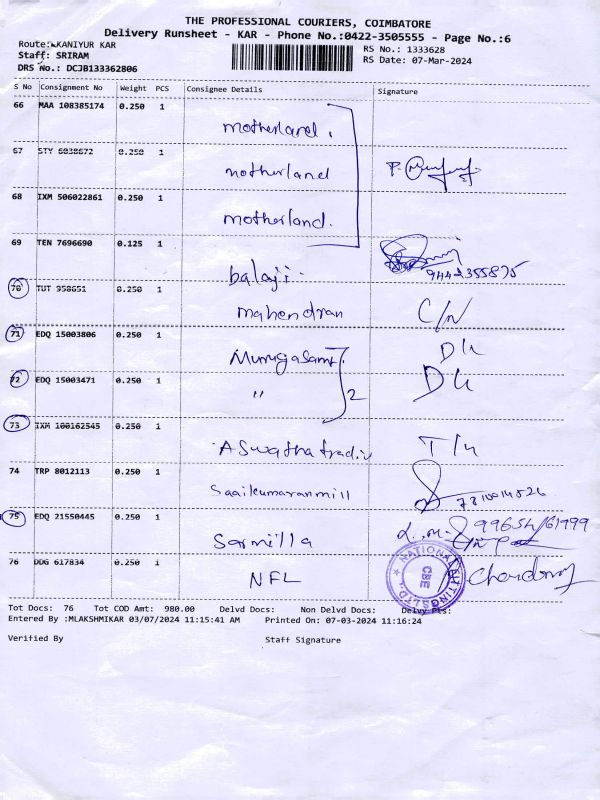 THE PROFESSIONAL COURIERS, COIMBATORE
Delivery Runsheet - KAR - Phone No.:0422-3505555 - Page No.:6
Route: KANIYUR KAR RS No.: 1333628
Staff: SRIRAM RS Date: 07-Mar-2024
DRS No.: DCJB133362806
S No Consignment No Weight PCS Consignee Details Signature
66 MAA 108385174 0.250 1
motherland.
67 STY 6038672 0.250 1
motherland
68 IXM 506022861 0.250 1
motherland.
69 TEN 7696690 0.125 1
balaji. 9442355875
70 TUT 958651 0.250 1
mahendran C/N
71 EDQ 15003806 0.250 1
Murugasami D/L
72 EDQ 15003471 0.250 1
" 2 D/L
73 IXM 100162545 0.250 1
Aswathatradiv T/L
74 TRP 8012113 0.250 1
Saaikumaranmill
75 EDQ 21550445 0.250 1
Sarmilla 99654/61999
76 DDG 617834 0.250 1
NFL
NATIONAL FITTINGS LTD.
CBE
Tot Docs: 76 Tot COD Amt: 980.00 Delvd Docs: Non Delvd Docs: Delvy Pts:
Entered By :MLAKSHMIKAR 03/07/2024 11:15:41 AM Printed On: 07-03-2024 11:16:24
Verified By Staff Signature